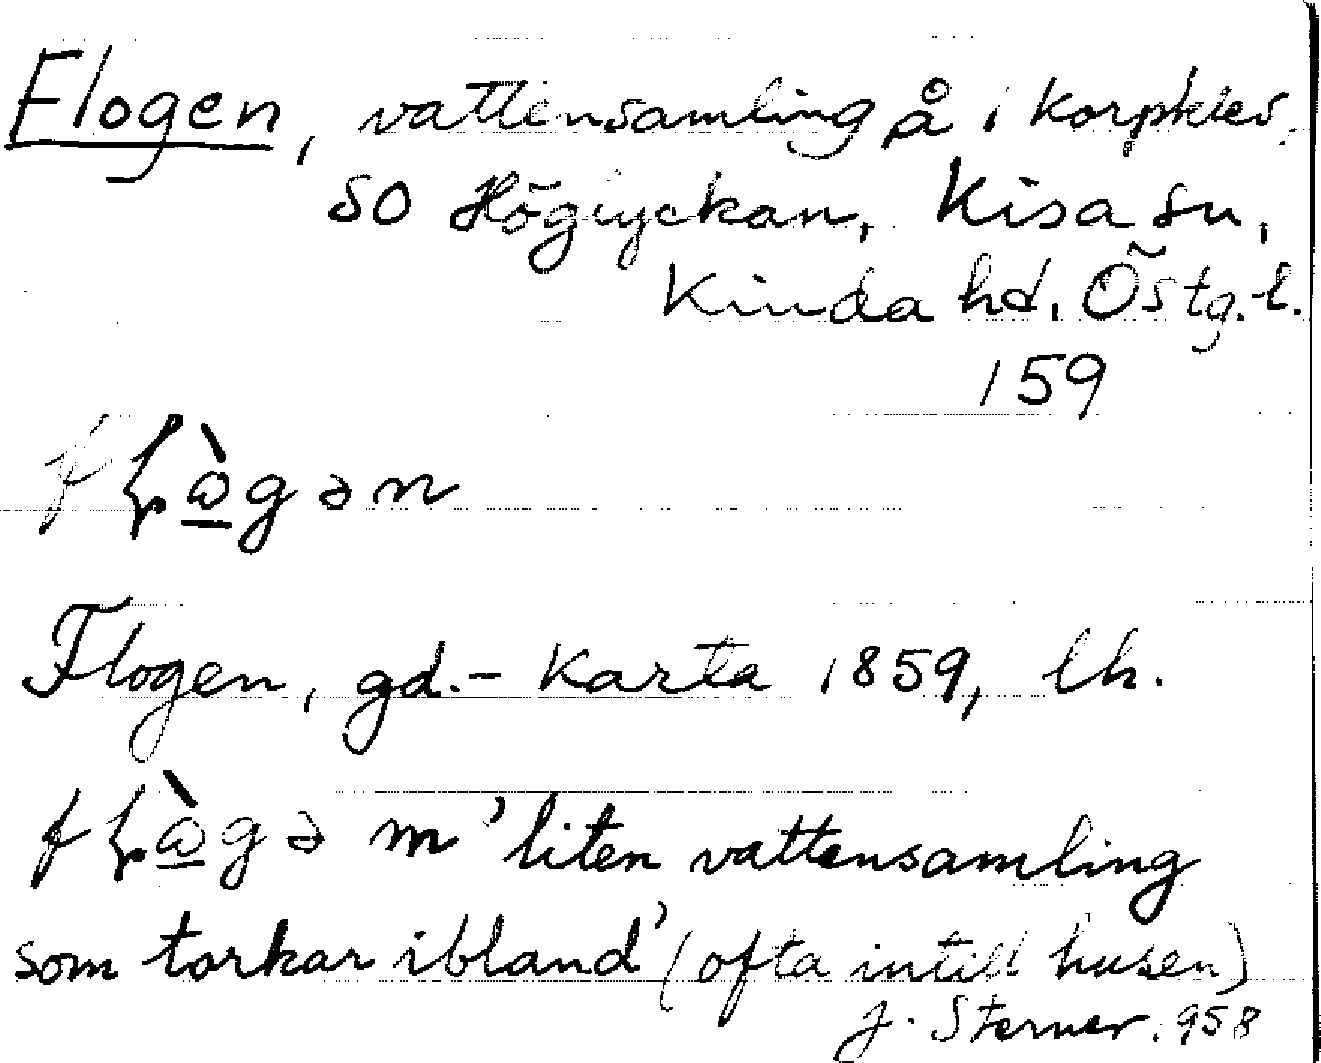 Flogen, vattensamling å i Korpklev,
SO Höglyckan, Kisa sn,
Kinda hd. Östg.-l.
159
fɽὼ̲gən
Flogen, gd.-karta 1859, lh.
fɽὼ̲gə m 'liten vattensamling
som torkar ibland' (ofta intill husen)
J. Sterner. 958